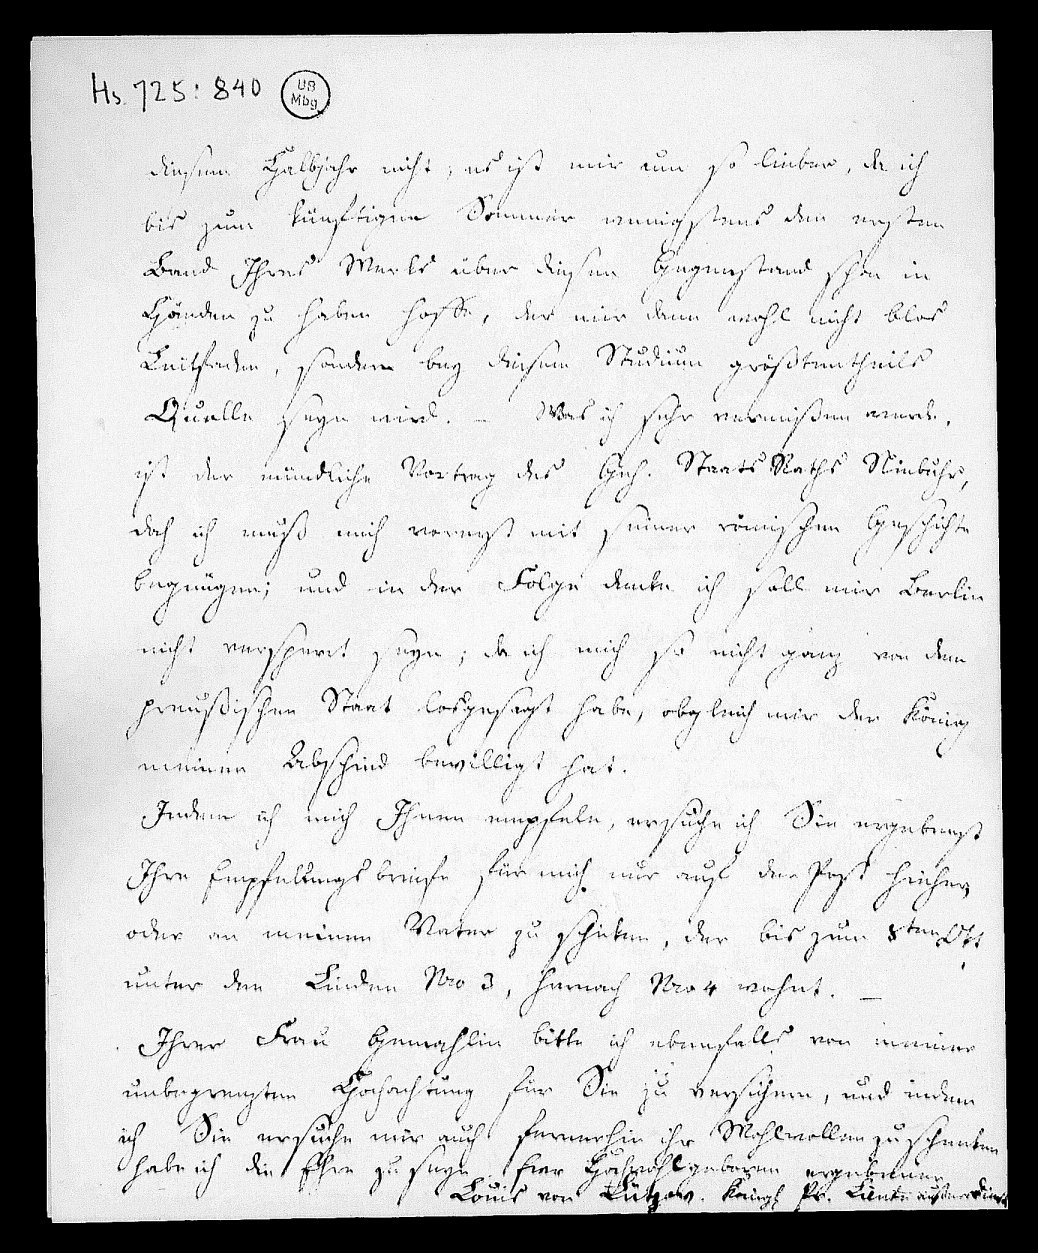 Hs. 725: 840
UB
Mbg.
diesem Halbjahr nicht; es ist mir um so lieber, da ich
bis zum künftigen Sommer wenigstens den ersten
Band Ihres Werks über diesen Gegenstand schon in
Händen zu haben hoffe, der mir dann wohl nicht blos
Leitfaden, sondern bey diesem Studium größtentheils
Quelle seyn wird. — Was ich sehr vermißen werde,
ist der mündliche Vortrag des Geh. Staats Raths Niebuhr,
doch ich muß mich vorerst mit seiner römischen Geschichte
begnügen; und in der Folge denke ich soll mir Berlin
nicht versperrt seyn; da ich mich so nicht ganz von dem
preußischen Staat losgesagt habe, obgleich mir der König
meinen Abschied bewilligt hat.
Indem ich mich Ihnen empfele, ersuche ich Sie ergebenst
Ihre Empfelungsbriefe für mich nur auf der Post hieher
oder an meinen Vater zu schicken, der bis zum 8ten Okt
unter den Linden Nro 3, hernach Nro 4 wohnt. —
Ihrer Frau Gemahlin bitte ich ebenfalls von meiner
unbegrenzten Hochachtung für Sie zu versichern, und indem
ich Sie ersuche mir auch fernerhin ihr Wohlwollen zu schenken
habe ich die Ehre zu seyn Euer Hochwohlgeboren ergebener
Louis von Lützow. Königl Pr. Lieut. außer Dienst